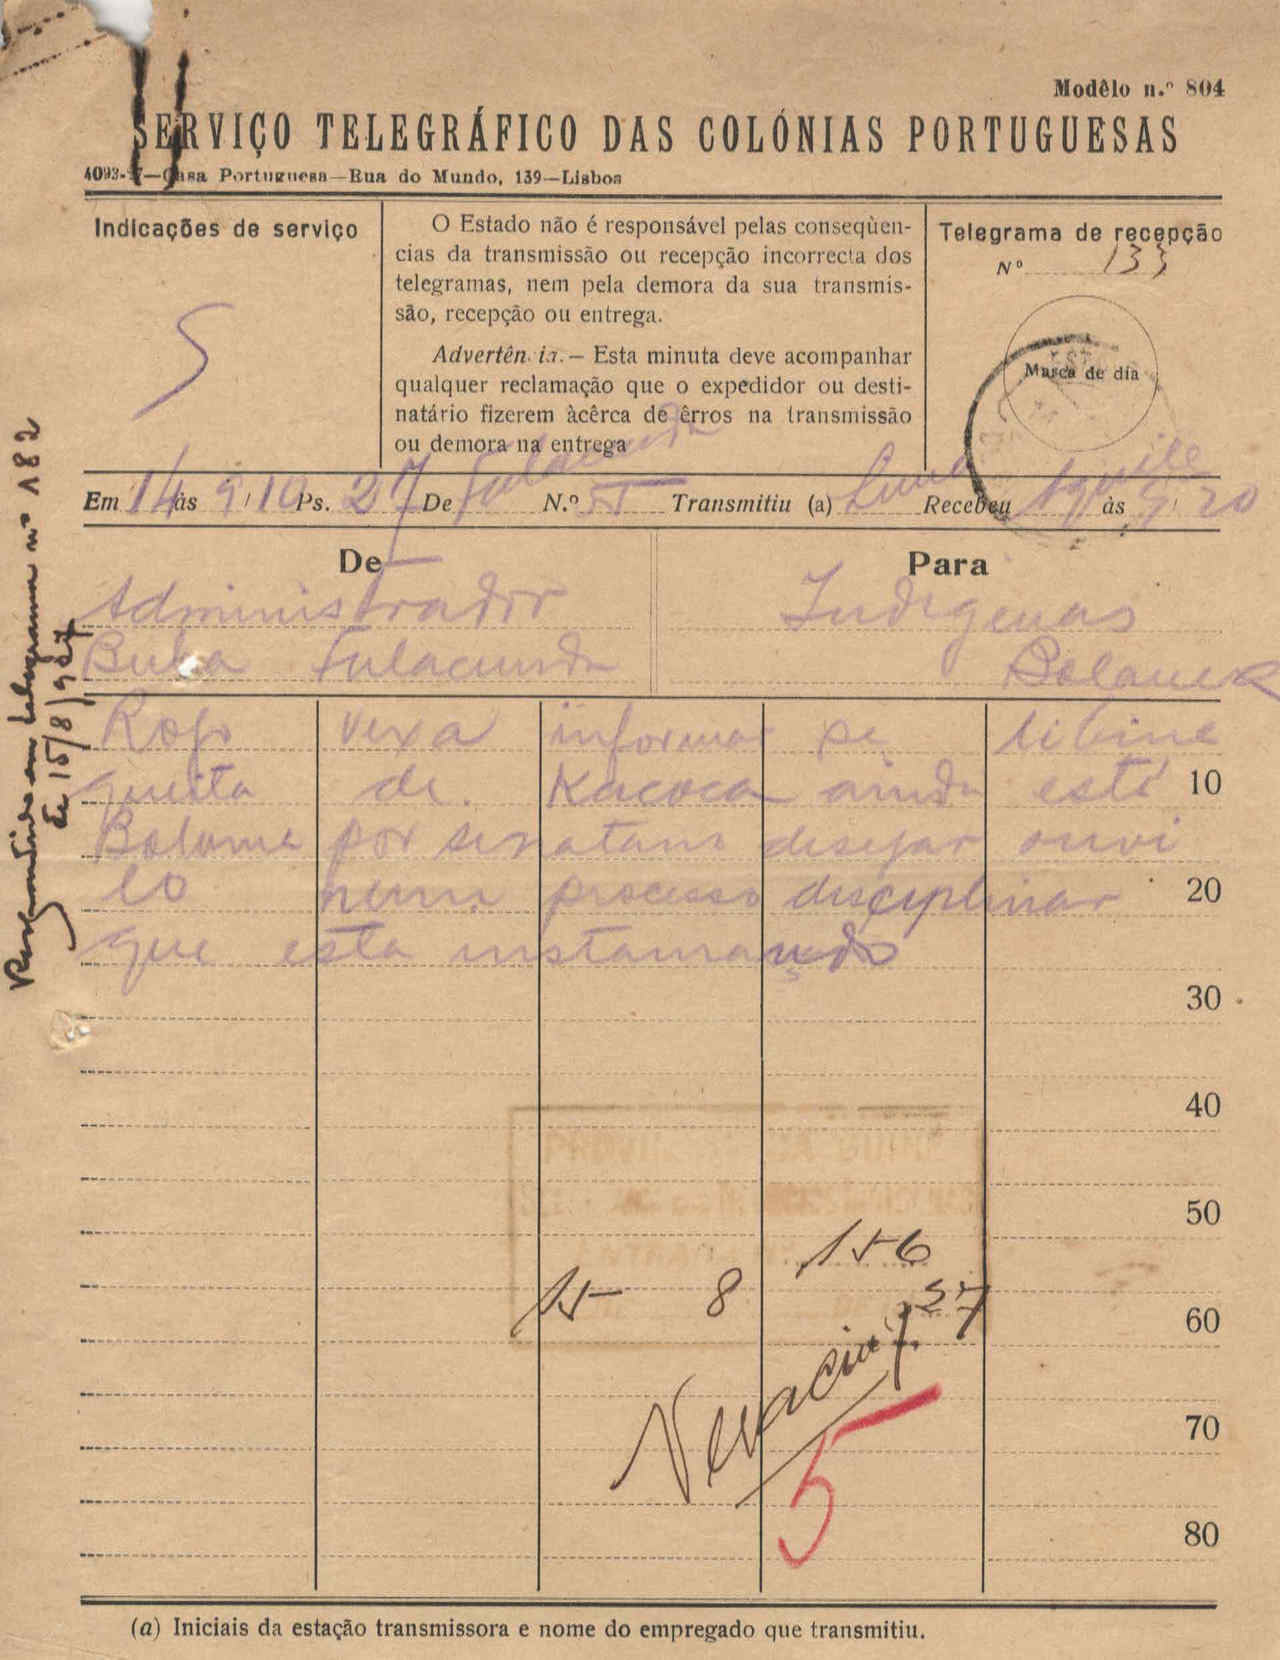 Modêlo n.º 804
SERVIÇO TELEGRÁFICO DAS COLÓNIAS PORTUGUESAS
Casa Portuguesa—Rua do Mundo, 139—Lisboa
Indicações de serviço
O Estado não é responsável pelas conseqüen-
cias da transmissão ou recepção incorrecta dos
telegramas, nem pela demora da sua transmis-
são, recepção ou entrega.
Advertên. ia.— Esta minuta deve acompanhar
qualquer reclamação que o expedidor ou desti-
natário fizerem àcêrca de êrros na transmissão
ou demora na entrega
Telegrama de recepção
Nº 133
Marca de dia
Em 14 às 9/10 Ps. 27 De Fulacunda N.º 55 Transmitiu (a) Recebeu às 9/20
De
Para
Administrador
Indigenas
Buba Fulacunda
Respondido em telegrama nº 182
de 15/8/927
Rogo vexa informar se
de Kacoca ainda está
10
Bolama por desejar ouvi
lo num processo disciplinar
20
que esta instaurando
30
40
50
156
15 8 27
60
70
5
80
(a) Iniciais da estação transmissora e nome do empregado que transmitiu.